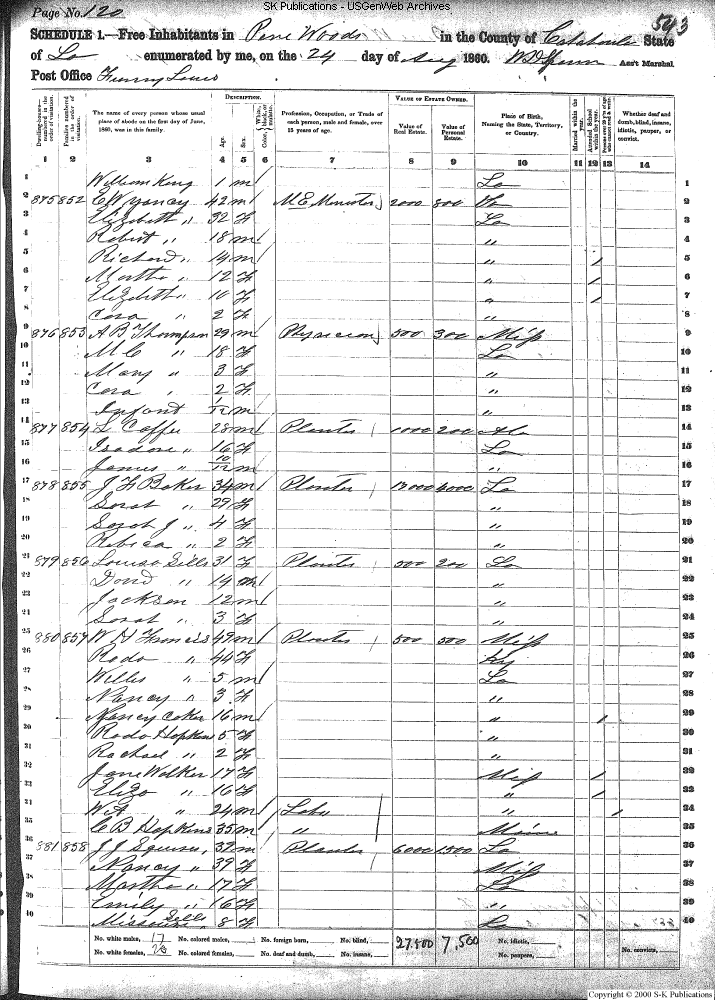 SK Publications - USGenWeb Archives
Page No. 120
593
SCHEDULE 1.—Free Inhabitants in Pine Woods in the County of Catahoula State
of La enumerated by me, on the 24 day of Aug 1860. Ass't Marshal.
Post Office
Dwelling-houses—numbered in the order of visitation.
Families numbered in the order of visitation.
The name of every person whose usual place of abode on the first day of June, 1860, was in this family.
DESCRIPTION.
Age.
Sex.
Color, White, black, or mulatto.
Profession, Occupation, or Trade of each person, male and female, over 15 years of age.
VALUE OF ESTATE OWNED.
Value of Real Estate.
Value of Personal Estate.
Place of Birth, Naming the State, Territory, or Country.
Married within the year.
Attended School within the year.
Persons over 20 y'rs of age who cannot read & write.
Whether deaf and dumb, blind, insane, idiotic, pauper, or convict.
1 2 3 4 5 6 7 8 9 10 11 12 13 14
1 William King 1 m La 1
2 875 852 C W Yancy 42 m M E Minister 2000 800 2
3 Elizabeth " 32 F La 3
4 Robert " 18 m " 4
5 Richard " 14 m " / 5
6 Martha " 12 F " / 6
7 Elizabeth " 10 F " / 7
8 Cora " 2 F " 8
9 876 853 A B Thompson 29 m Physician 500 300 Miss 9
10 M C " 18 F La 10
11 Mary " 3 F " 11
12 Cora " 2 F " 12
13 Infant 1/12 m " 13
14 877 854 L Coffee 28 m Planter 1000 200 Ala 14
15 Isadore " 16 F La 15
16 James " 10/12 m " 16
17 878 855 J F Baker 34 m Planter 4000 La 17
18 Sarah " 29 F " 18
19 Sarah J " 4 F " 19
20 Rebeca " 2 F " 20
21 879 856 Louisa Sills 31 F Planter 200 La 21
22 David " 14 m " 22
23 Jackson 12 m " 23
24 Sarah " 3 F " 24
25 880 857 W H Francis 49 m Planter 500 500 Miss 25
26 Roda " 44 F Ky 26
27 Willis " 5 m La 27
28 Nancy " 3 F " 28
29 Nancy Coker 16 m " / 29
30 Roda Hopkins 5 F " 30
31 Rachael " 2 F " 31
32 Jane Walker 17 F Miss / 32
33 Eliza " 16 F " / 33
34 W A " 24 m Labr " / 34
35 C B Hopkins 35 m " Maine 35
36 881 858 J J Squires 39 m Planter 6000 1500 La 36
37 Nancy " 39 F Miss 37
38 Martha " 17 F La 38
39 Emily " 16 F " 39
40 Missouri Sells 8 F La 40
No. white males, 17 No. colored males, No. foreign born, No. blind, 27,800 7,500 No. idiotic,
No. white females, No. colored females, No. deaf and dumb, No. insane, No. paupers, No. convicts,
Copyright © 2000 S-K Publications